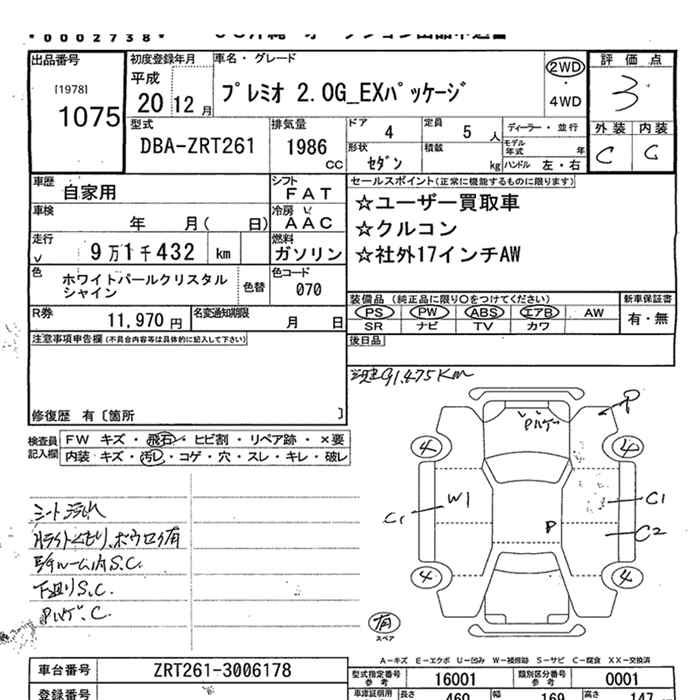 *0002738*
出品番号
[1978]
1075
初度登録年月
平成
20 12月
車名・グレード
プレミオ 2.0G_EXパッケージ
2WD
・
4WD
評価点
3
外装 内装
C C
型式
DBA-ZRT261
排気量
1986
CC
ドア 4
定員 5 人
ディーラー・並行
形状 セダン
積載 kg
モデル年式 年
ハンドル 左・右
車歴
自家用
シフト
FAT
車検
年 月( 日)
冷房
AAC
走行
9万1千432 km
燃料
ガソリン
色
ホワイトパールクリスタル
シャイン
色替
色コード
070
R券 11,970 円
名変通知期限
月 日
セールスポイント(正常に機能するものに限ります)
☆ユーザー買取車
☆クルコン
☆社外17インチAW
装備品 (純正品に限り○をつけてください)
PS PW ABS エアB AW
SR ナビ TV カワ
新車保証書
有・無
後日品
注意事項申告欄 (不具合内容等は具体的に記入して下さい)
修復歴 有〔箇所 〕
91,475Km
検査員
記入欄
FW キズ・飛石・ヒビ割・リペア跡・×要
内装 キズ・汚レ・コゲ・穴・スレ・キレ・破レ
シート汚れ
下廻りS.C.
Pルゲ.C.
Pルゲ
P
4 4
W1
C1
C1
P
C2
4 4
有
スペア
A-キズ E-エクボ U-凹み W-補修跡 S-サビ C-腐食 XX-交換済
車台番号
ZRT261-3006178
型式指定番号
参考
16001
類別区分番号
参考
0001
登録番号
車庫証明用
長さ
460
幅
169
高さ
147